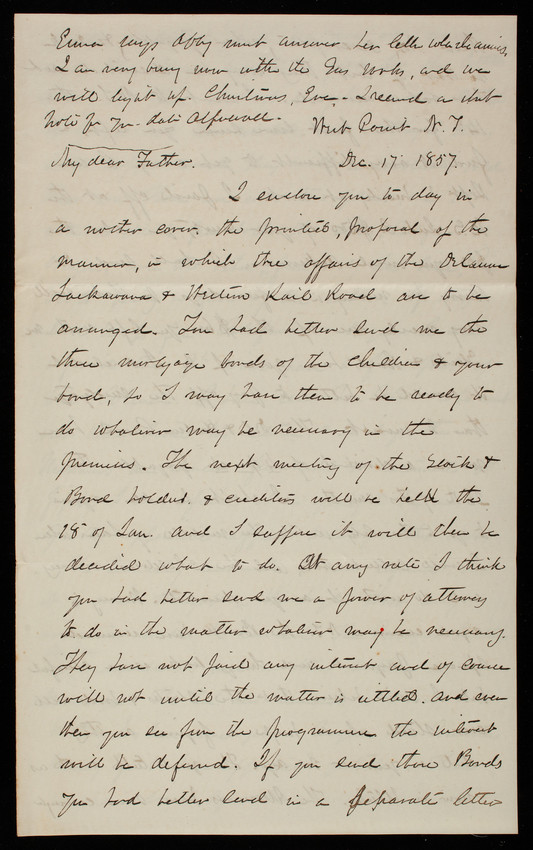 Emma says Abby must answer her letter when he arrives.
I am very busy now with the Gas Works, and we
will light up Christmas, Eve. - I recend a short
note for you - date
West Point N.Y.
My dear Father.
Dec. 17 1857.
I enclose you to day in
a nother cover, the printed, proposal of the
manner, in which the affairs of the Delaware
Lackawana & Western Rail Road are to be
arranged. You had better send me the
three mortgage bonds of the children & your
bond, so I may have them to be ready to
do whatever may be necessary in the
premises. The next meeting of the Stock &
Bond holders. & creditors will be held the
18 of Jan. and I suppose it will then be
decided what to do. At any rate I think
you had better send me a power of attorney
to do in the matter whatever may be necessary.
They have not paid any interest and of course
will not until the matter is settled. and even
then you see from the programme the interest
will be deferred. If you send those Bonds
you had better send in a separate letter